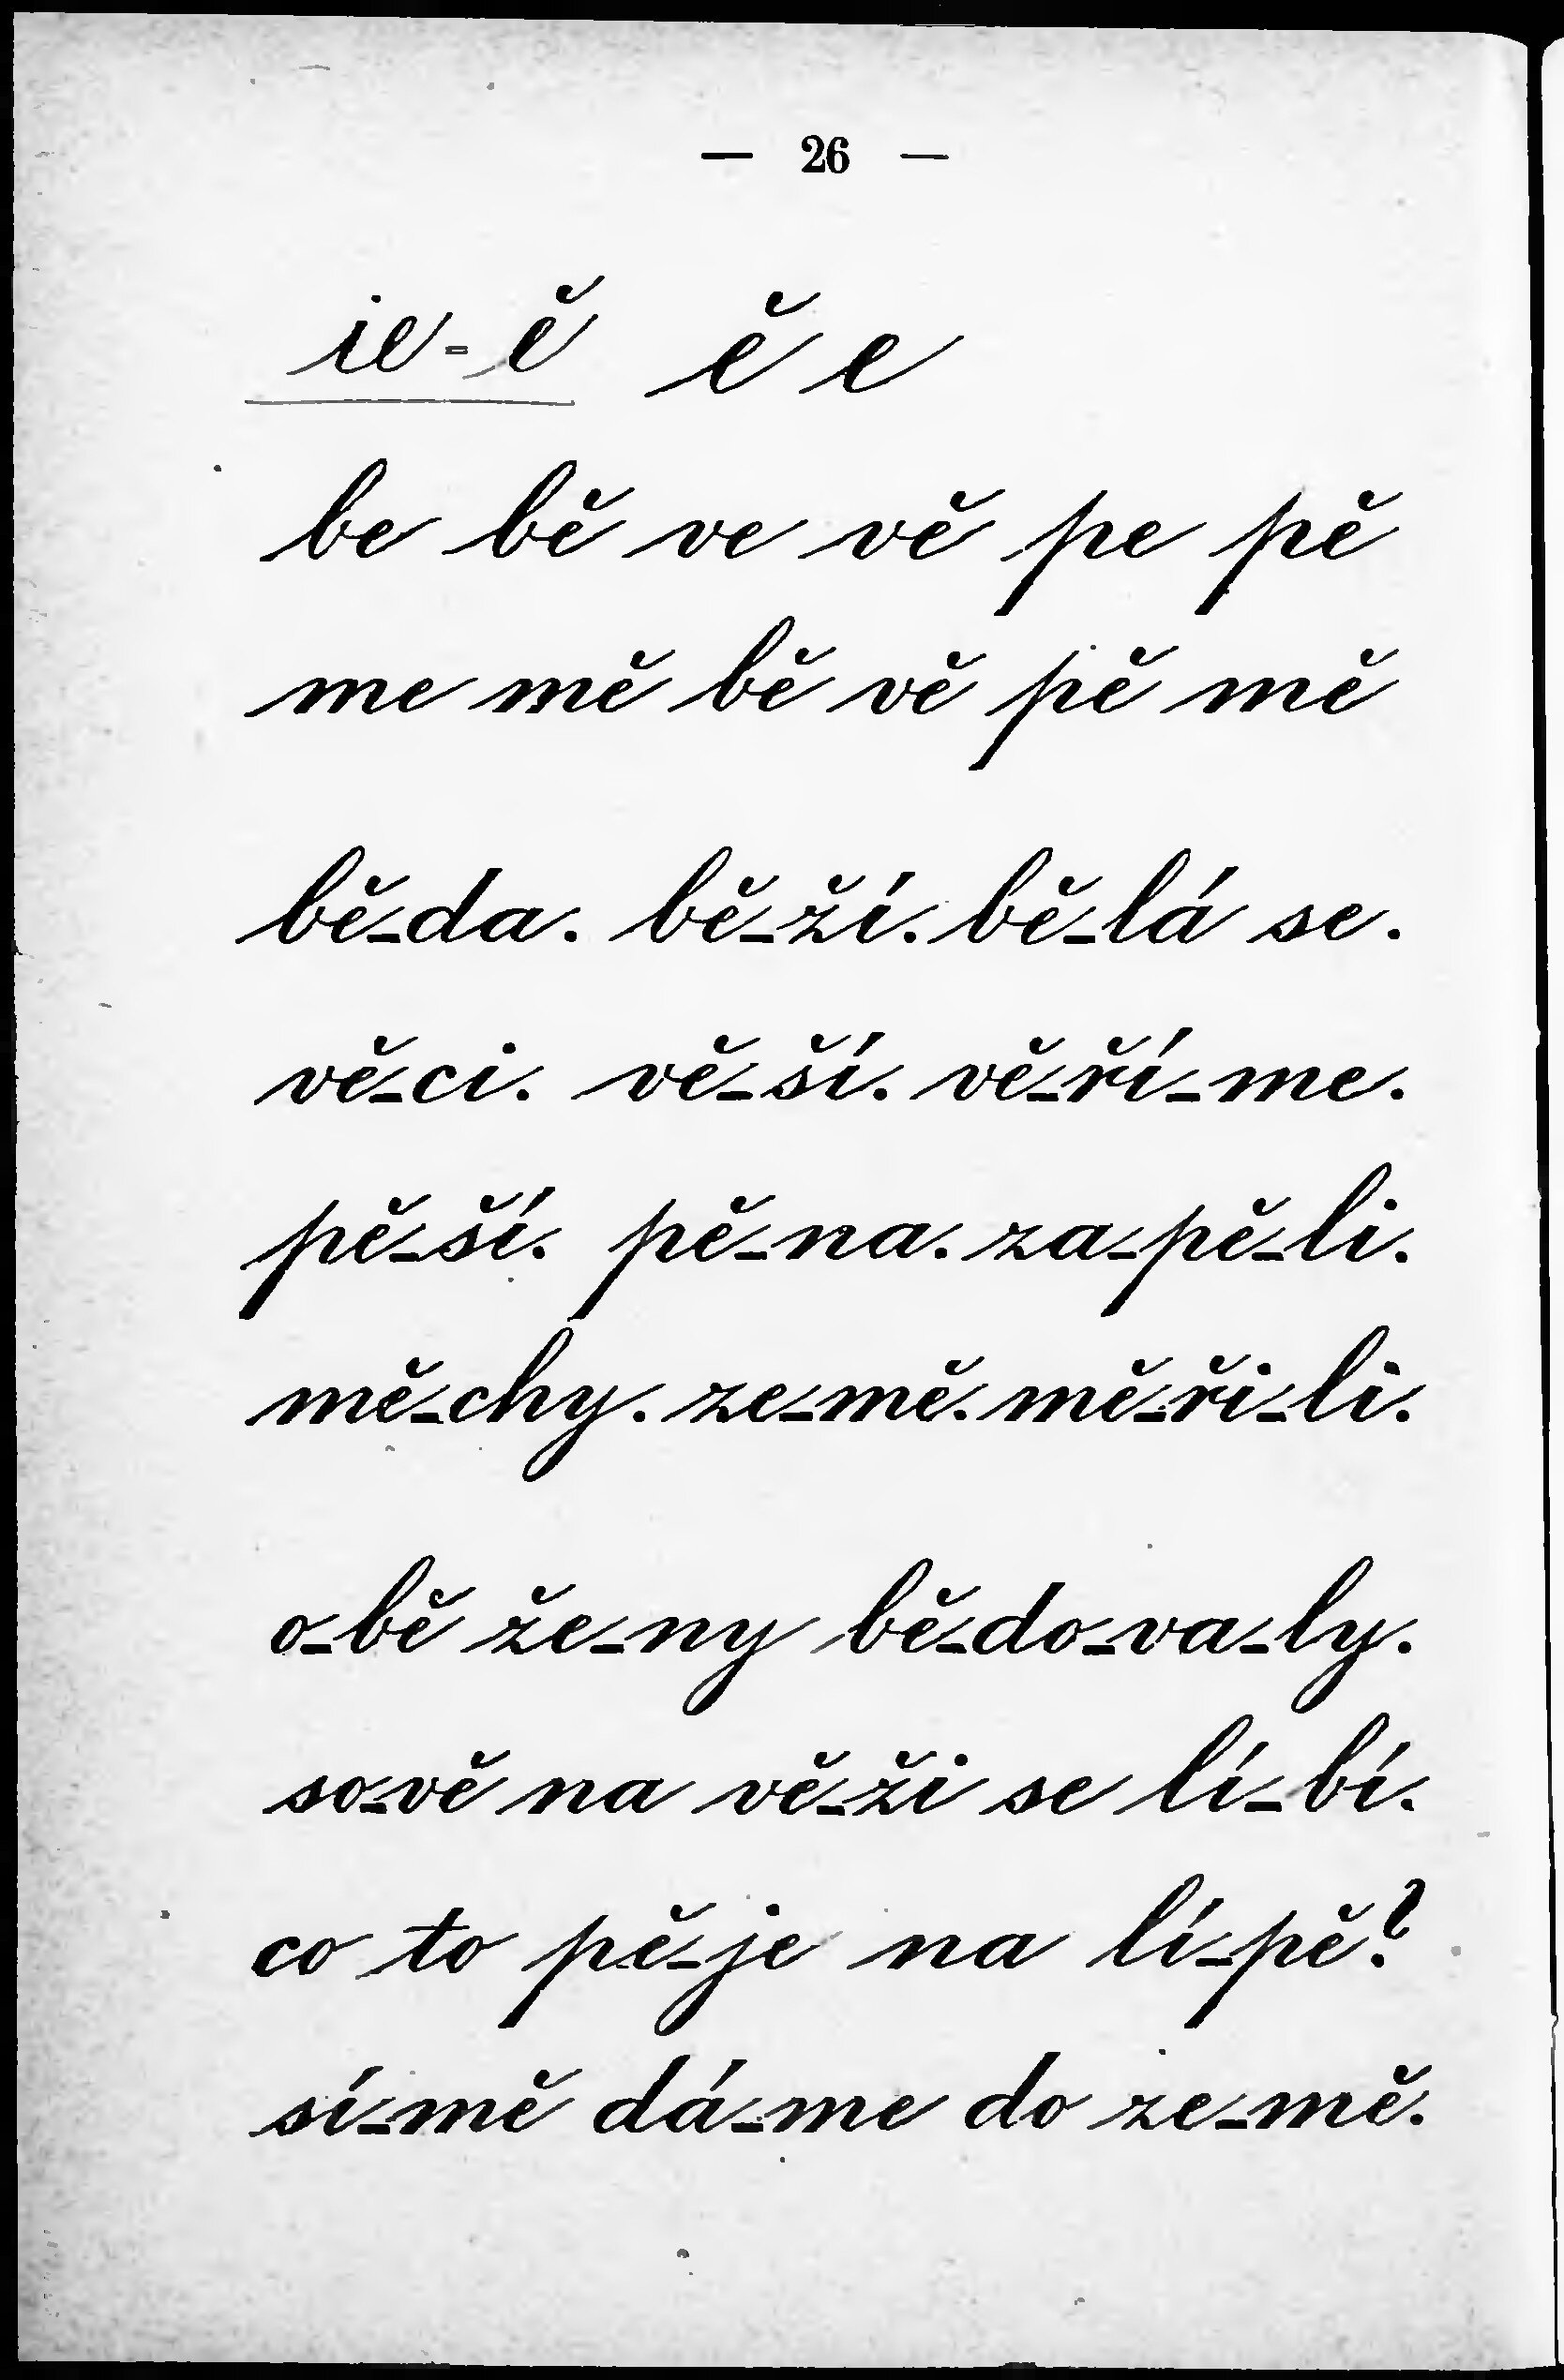 — 26 —
ie - ě ě e
be bě ve vě pe pě
me mě bě vě pě mě
bě-da. bě-ží. bě-lá se.
vě-ci. vě-ší. vě-ří-me.
pě-ší. pě-na. za-pě-li.
mě-chy. ze-mě. mě-ři-li.
o-bě že-ny bě-do-va-ly.
so-vě na vě-ži se lí-bí.
co to pě-je na lí-pě?
sí-mě dá-me do ze-mě.